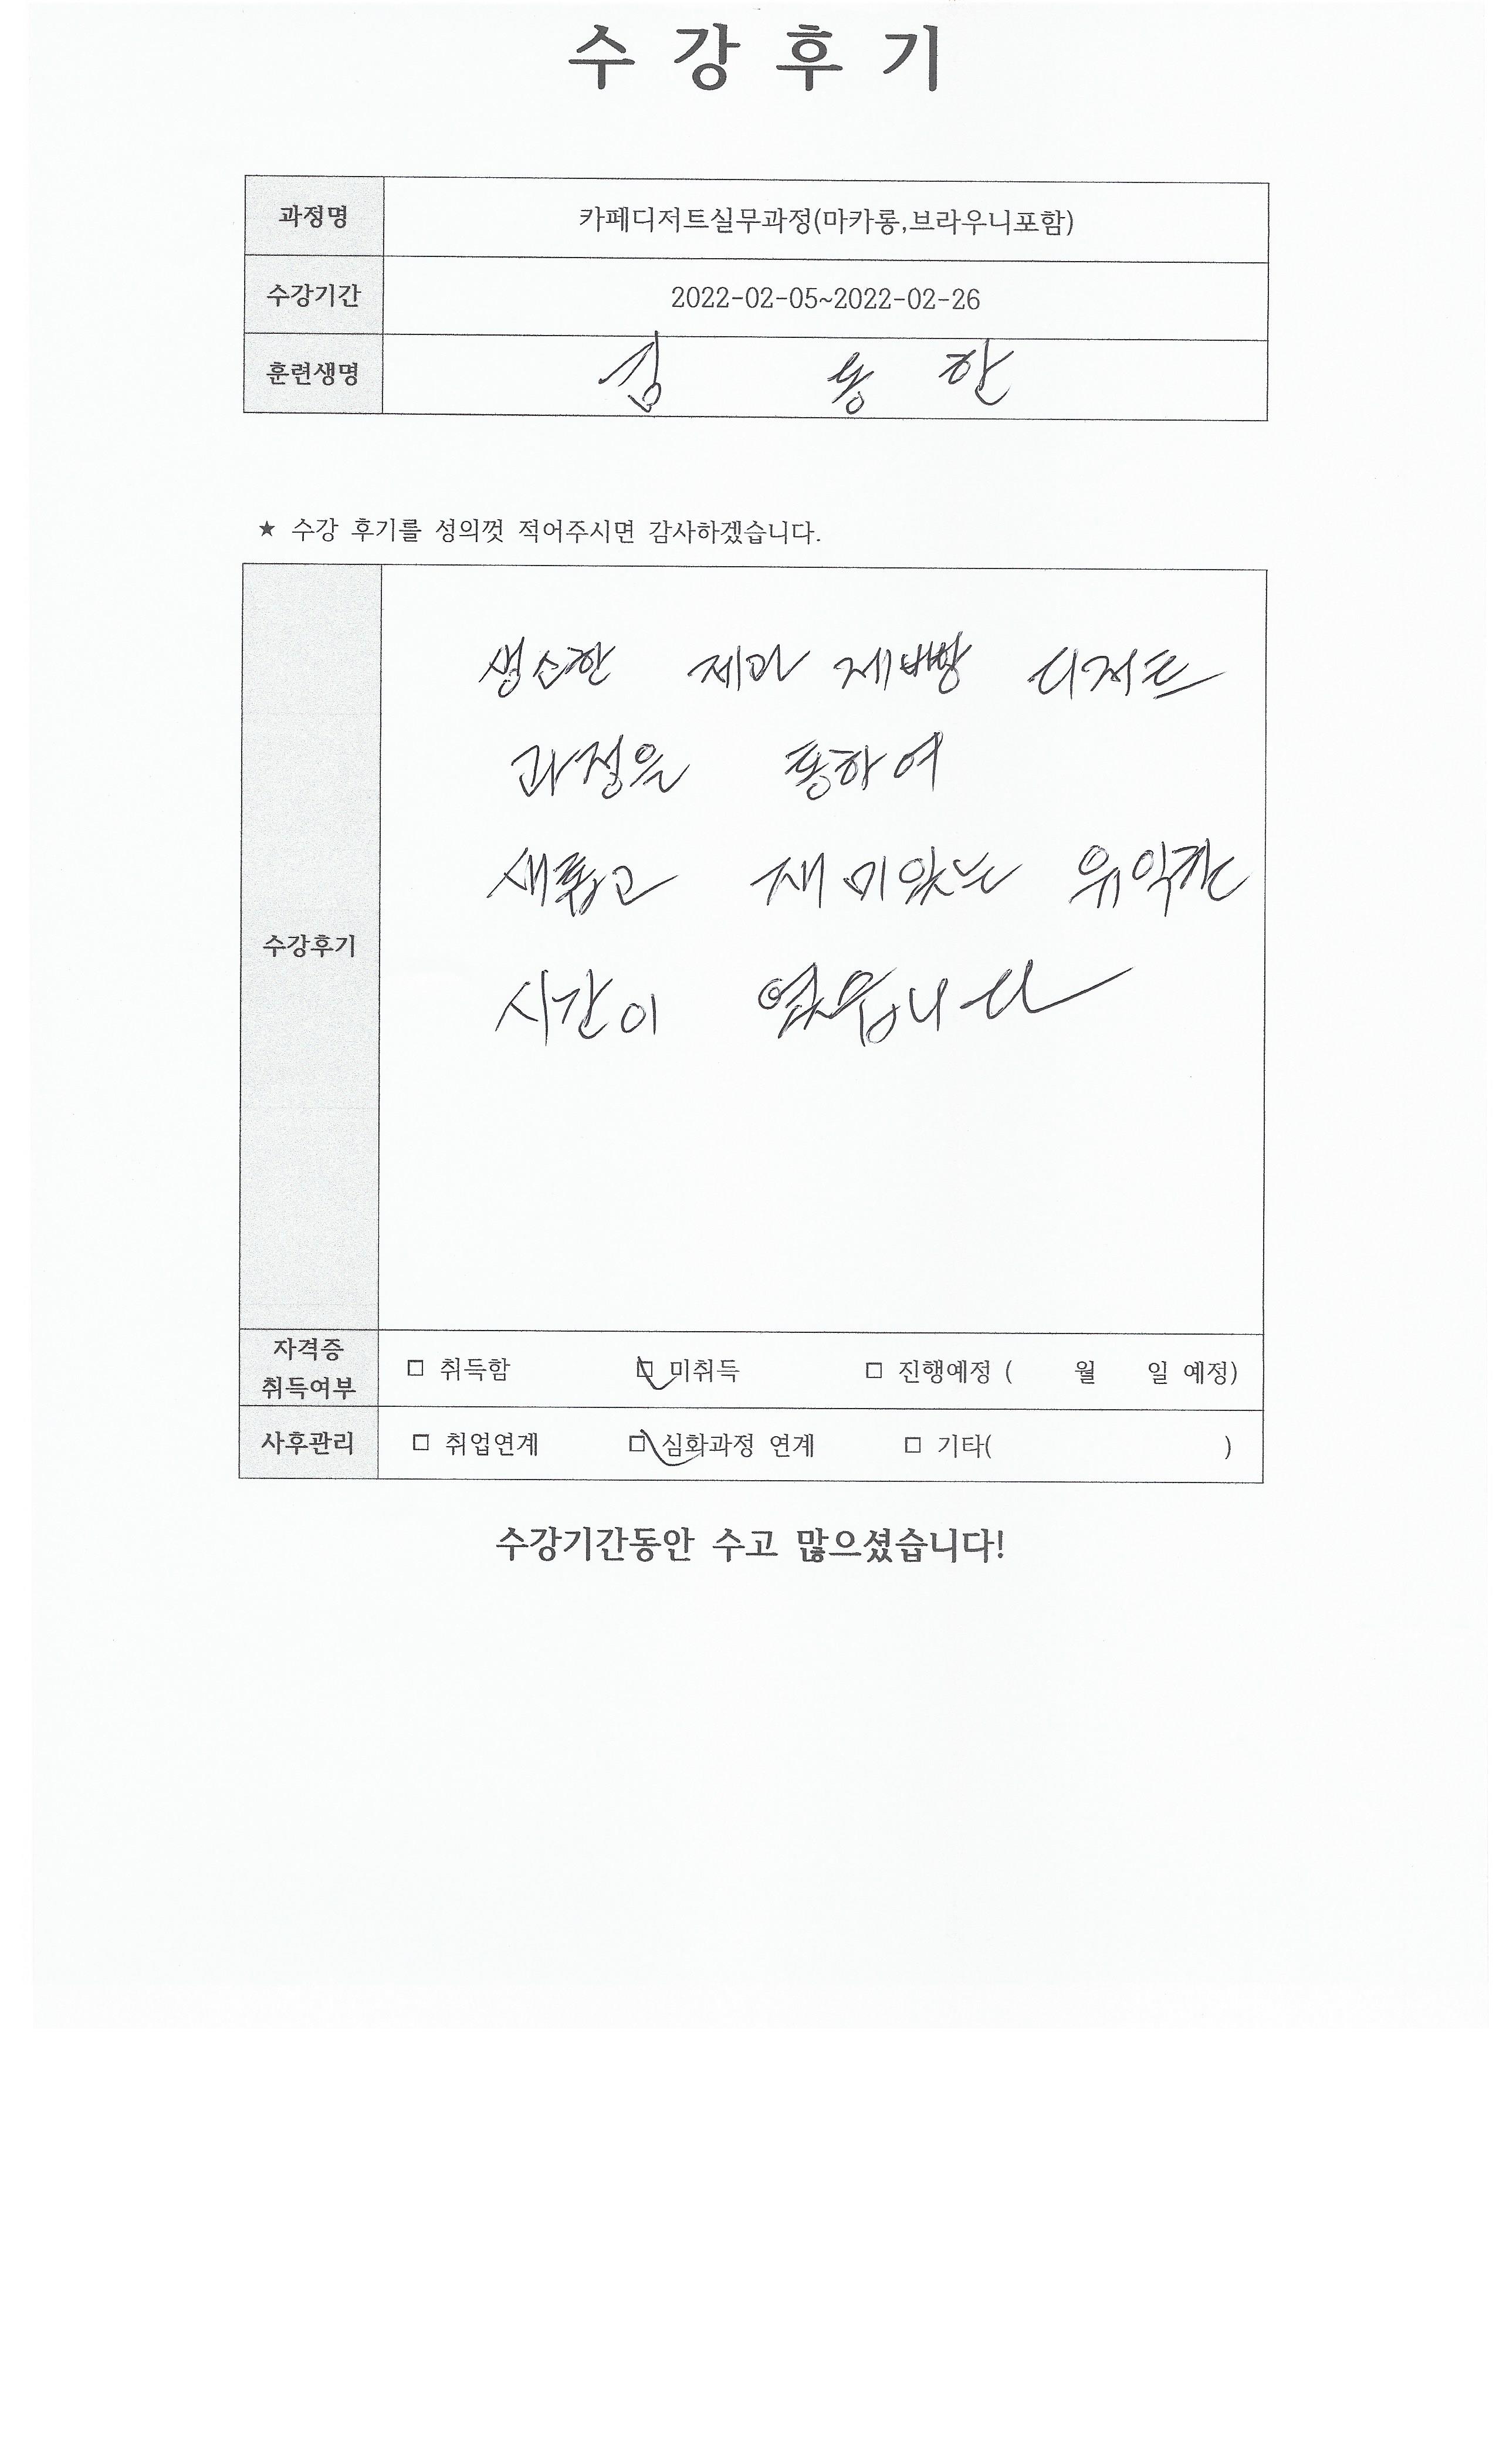 수 강 후 기
과정명 카페디저트실무과정(마카롱,브라우니포함)
수강기간 2022-02-05~2022-02-26
훈련생명 김 동 한
★ 수강 후기를 성의껏 적어주시면 감사하겠습니다.
수강후기
생소한 제과 제빵 디저트
과정을 통하여
새롭고 재미있는 유익한
시간이 였읍니다
자격증
취득여부
□ 취득함 □ 미취득 □ 진행예정 ( 월 일 예정)
사후관리 □ 취업연계 □ 심화과정 연계 □ 기타( )
수강기간동안 수고 많으셨습니다!